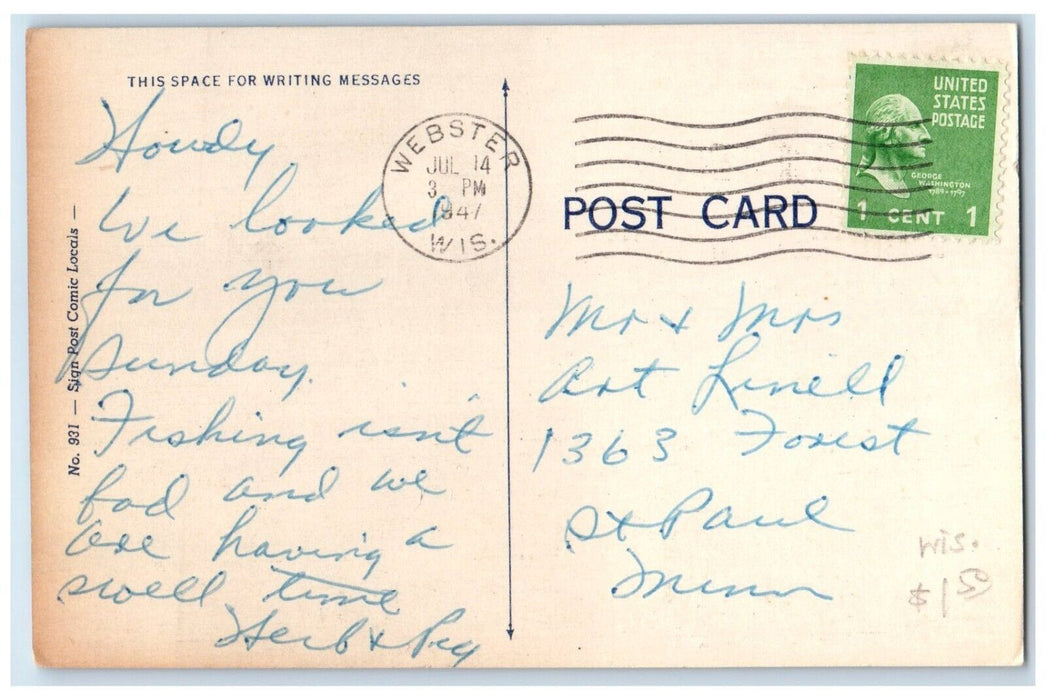 THIS SPACE FOR WRITING MESSAGES
Howdy
We looked
for you
Sunday.
Fishing isn't
bad and we
are having a
swell time
Herb & Peg
No. 931 — Sign Post Comic Locals —
WEBSTER
JUL 14
3 PM
1947
WIS.
UNITED
STATES
POSTAGE
GEORGE
WASHINGTON
1789-1797
1 CENT 1
POST CARD
Mr & Mrs
Art Linell
1363 Forest
St Paul
Minn
Wis.
$1.50